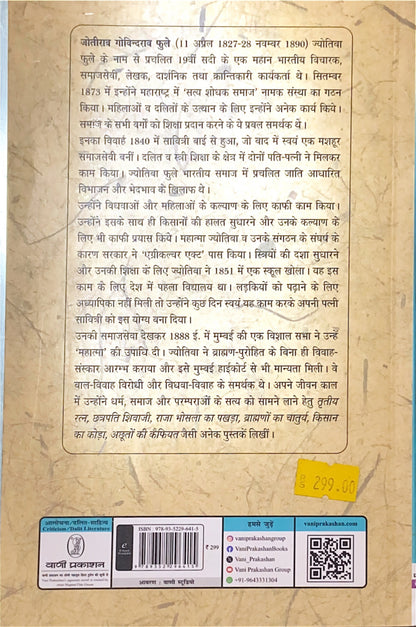 जोतीराव गोविन्दराव फुले (11 अप्रैल 1827-28 नवम्बर 1890) ज्योतिबा
फुले के नाम से प्रचलित 19वीं सदी के एक महान भारतीय विचारक,
समाजसेवी, लेखक, दार्शनिक तथा क्रान्तिकारी कार्यकर्ता थे। सितम्बर
1873 में इन्होंने महाराष्ट्र में 'सत्य शोधक समाज' नामक संस्था का गठन
किया। महिलाओं व दलितों के उत्थान के लिए इन्होंने अनेक कार्य किये।
समाज के सभी वर्गों को शिक्षा प्रदान करने के ये प्रबल समर्थक थे।
इनका विवाह 1840 में सावित्री बाई से हुआ, जो बाद में स्वयं एक मशहूर
समाजसेवी बनीं। दलित व स्त्री शिक्षा के क्षेत्र में दोनों पति-पत्नी ने मिलकर
काम किया। ज्योतिबा फुले भारतीय समाज में प्रचलित जाति आधारित
विभाजन और भेदभाव के ख़िलाफ़ थे।
उन्होंने विधवाओं और महिलाओं के कल्याण के लिए काफी काम किया।
उन्होंने इसके साथ ही किसानों की हालत सुधारने और उनके कल्याण के
लिए भी काफी प्रयास किये। महात्मा ज्योतिबा व उनके संगठन के संघर्ष के
कारण सरकार ने 'एग्रीकल्चर एक्ट' पास किया। स्त्रियों की दशा सुधारने
और उनकी शिक्षा के लिए ज्योतिबा ने 1851 में एक स्कूल खोला। यह इस
काम के लिए देश में पहला विद्यालय था। लड़कियों को पढ़ाने के लिए
अध्यापिका नहीं मिली तो उन्होंने कुछ दिन स्वयं यह काम करके अपनी पत्नी
सावित्री को इस योग्य बना दिया।
उनकी समाजसेवा देखकर 1888 ई. में मुम्बई की एक विशाल सभा ने उन्हें
'महात्मा' की उपाधि दी। ज्योतिबा ने ब्राह्मण-पुरोहित के बिना ही विवाह-
संस्कार आरम्भ कराया और इसे मुम्बई हाईकोर्ट से भी मान्यता मिली। वे
बाल-विवाह विरोधी और विधवा-विवाह के समर्थक थे। अपने जीवन काल
में उन्होंने धर्म, समाज और परम्पराओं के सत्य को सामने लाने हेतु तृतीय
रत्न, छत्रपति शिवाजी, राजा भोसला का पखड़ा, ब्राह्मणों का चातुर्य, किसान
का कोड़ा, अछूतों की कैफियत जैसी अनेक पुस्तकें लिखीं।
299.00
आलोचना/दलित-साहित्य
Criticism/Dalit Literature
वाणी प्रकाशन
ISBN 978-93-5229-641-5
₹ 299
आवरण : वाणी स्टूडियो
हमसे जुड़ें
Vaniprakashangroup
VaniPrakashanBooks
Vani_Prakashan
Vani Prakashan Group
+91-9643331304
vaniprakashan.com